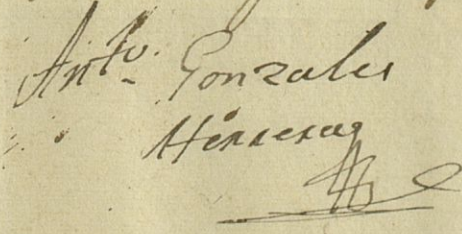 Anto. Gonzales
Herreraz